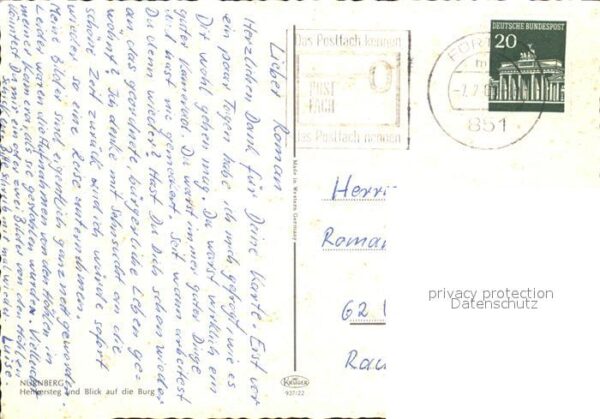 Lieber Roman
Herzlichen Dank für Deine Karte. Erst vor
ein paar Tagen habe ich mich gefragt, wie es
Dir wohl gehen mag. Du warst wirklich ein
guter Kamerad. Du warst immer guter Dinge
und hast nie gemeckert. Seit wann arbeitest
Du denn wieder? Hast Du Dich schon wieder
an das geordnete, bürgerliche Leben ge-
wöhnt? Ich denke mit Sehnsucht an die
schöne Zeit zurück und ich würde sofort
wieder so eine Reise unternehmen.
Meine Bilder sind eigentlich ganz nett geworden
leider waren die Aufnahmen von den Höhlen, in
meiner Kamera, die gestohlen wurde. Vielleicht
könntest Du mir ein oder zwei Bilder von den Höhlen
schicken. Bitte schreib mal wieder Luise.
NÜRNBERG
Henkersteg und Blick auf die Burg
Made in Western Germany
KRÜGER
937/22
Das Postfach kennen
POST
FACH
das Postfach nennen
851
DEUTSCHE BUNDESPOST
20
Herrn
Roman
62
privacy protection
Datenschutz